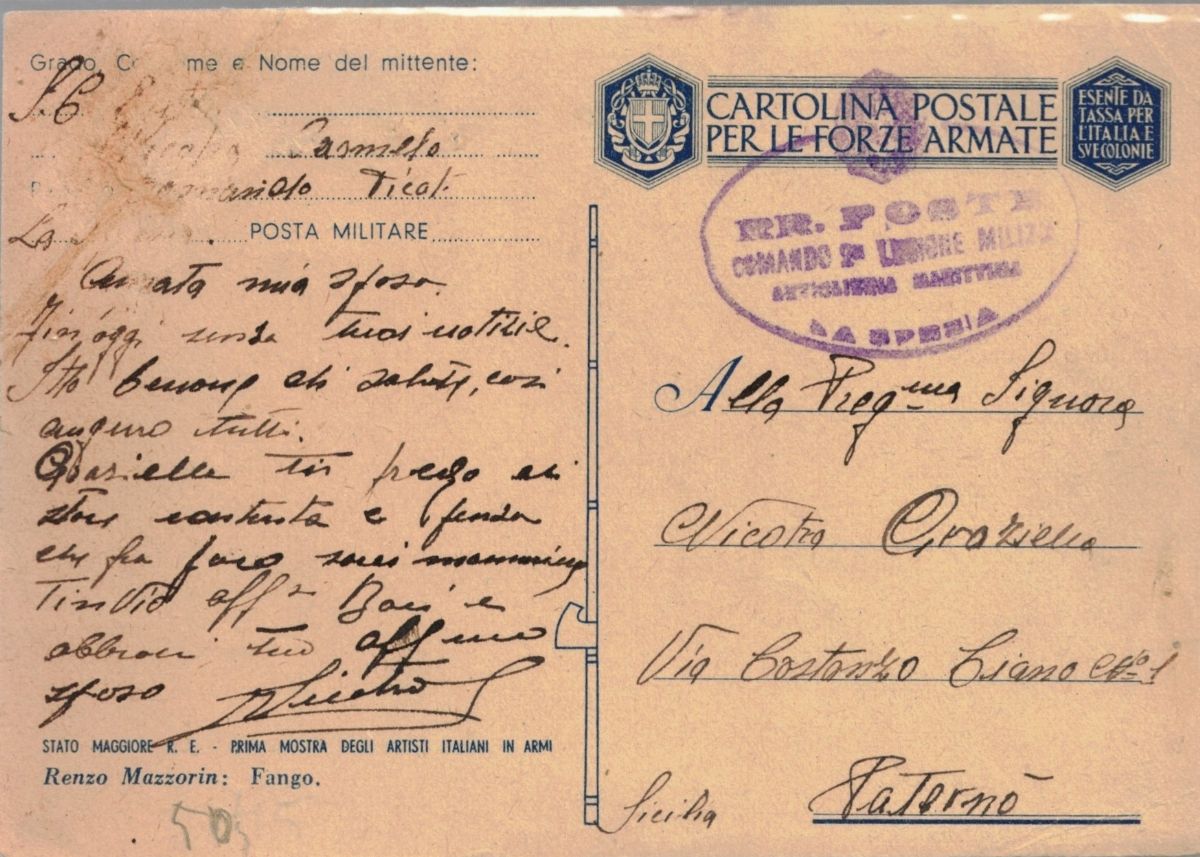 Grado, Co me e Nome del mittente:
Carmelo
La POSTA MILITARE
Amata mia sposa.
Fin'oggi senza tuoi notizie.
Sto benone di salute, così
auguro tutti.
Graziella ti prego di
stare contenta e pensa
che fra poco sarai mammina
T'invio aff baci e
abbracci tuo aff mo
sposo Nicotra
STATO MAGGIORE R. E. - PRIMA MOSTRA DEGLI ARTISTI ITALIANI IN ARMI
Renzo Mazzorin: Fango.
50
CARTOLINA POSTALE
PER LE FORZE ARMATE
ESENTE DA
TASSA PER
L'ITALIA E
SVE COLONIE
RR. POSTE
COMANDO LEGIONE MILIZIA
ARTIGLIERIA MARITTIMA
LA SPEZIA
Alla Preg.ma Signora
Nicotra Graziella
Via Costanzo Ciano No 1
Paternò
Sicilia